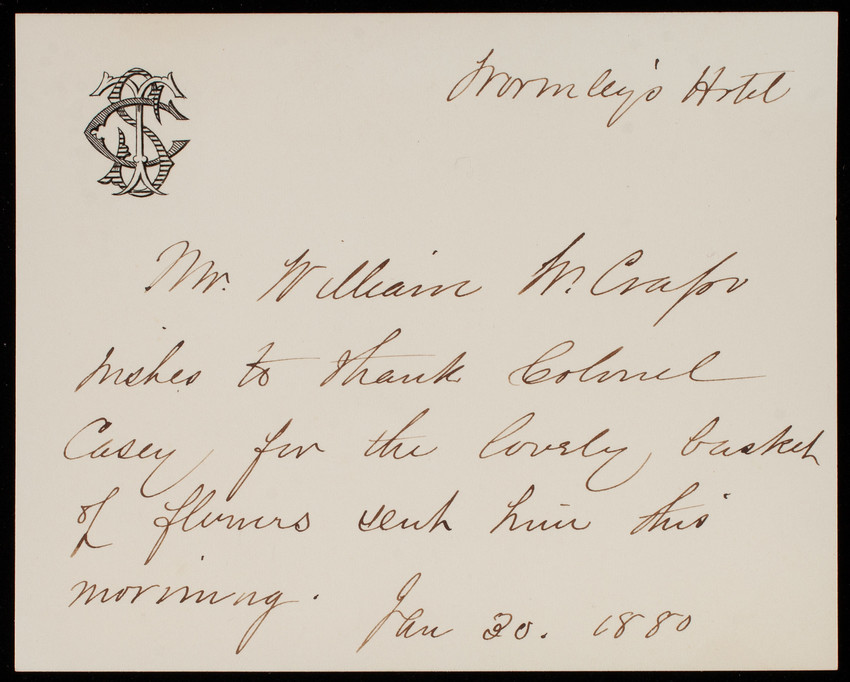 Wormley's Hotel
Mr. William W. Crapo
wishes to thank Colonel
Casey for the lovely basket
of flowers sent him this
morning.
Jan 30. 1880